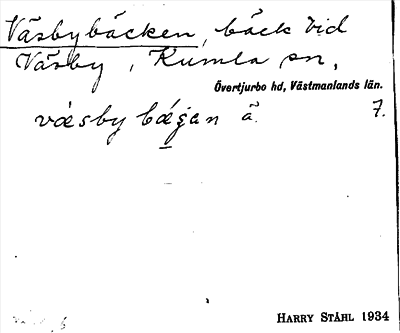 Väsbybäcken, bäck vid
Väsby, Kumla sn,
Övertjurbo hd, Västmanlands län.
väsby bäʒ̣an ä. 7.
HARRY STÅHL 1934